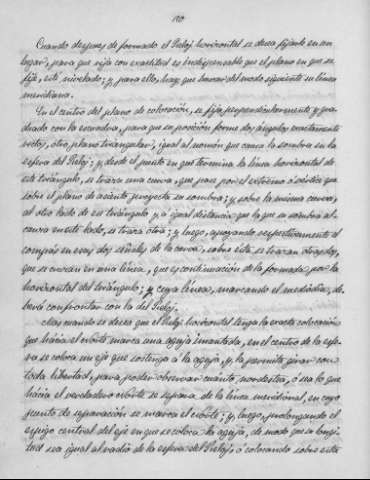 10
Cuando despues de formado el Reloj horizontal se desea fijarlo en un
lugar, para que rija con exactitud es indispensable que el plano en que se
fije, esté nivelado; y para ello, hay que buscar del modo siguiente su linea
meridiana.
En el centro del plano de colocación, se fija perpendicularmente y gra-
duado con la escuadra, para que su posición forme dos ángulos exactamente
rectos, otro, plano triangular, igual al nomón que causa la sombra en la
esfera del Reloj; y desde el punto en que termina la linea horizontal de
este triángulo, se trasa una curva, que pase por el extremo ó vértice que
sobre el plano de asiento proyecta su sombra; y sobre la misma curva,
al otro lado de ese triángulo y a igual distancia que la que su sombra al-
canza en este lado, se traza otra; y luego, apoyando respectivamente el
compás en esas dos señales de la curva, sobre ésta se trazan otras dos,
que se cruzan en una linea, que es continuación de la formada por la
horizontal del triángulo; y cuya linea, marcando el mediodia, de-
berá confrontar con la del Reloj.
Mas cuando se desea que el Reloj horizontal tenga la exacta colocación
que hácia el norte marca una aguja imantada, en el centro de la esfe-
ra se coloca un eje que sostenga á la aguja, y la permita girar con
toda libertad, para poder observar cuánto nordestea, ó sea lo que
hácia el verdadero norte se separa de la linea meridional, en cuyo
punto de separación se marca el norte; y luego, prolongando el
espigo central del eje en que se coloca la aguja, de modo que su longi-
tud sea igual al radio de la esfera del Reloj, ó colocando sobre este